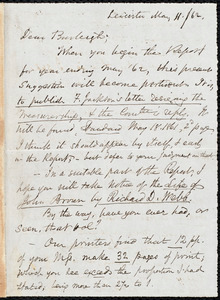 Leicester May 11./62.
Dear Burleigh;
When you begin the Report
for year ending May '62, this present
suggestion will become pertinent. It is,
to publish F. Jackson's letter resigning the
Treasurership, & the Comtee's reply. It
will be found Standard May 18. 1861, 2d page.
I think it should appear by itself & early
in the Report; but defer to your judgment in that.
— In a suitable part of the Report, I
hope you will take notice of the Life of
John Brown by Richard D. Webb.
By the way, have you ever had, or
seen, that vol?
— Our printers find that 12 pp.
of your Mss. make 32 pages of print,
which you see exceeds the proportion I had
stated, being more than 2½ to 1.